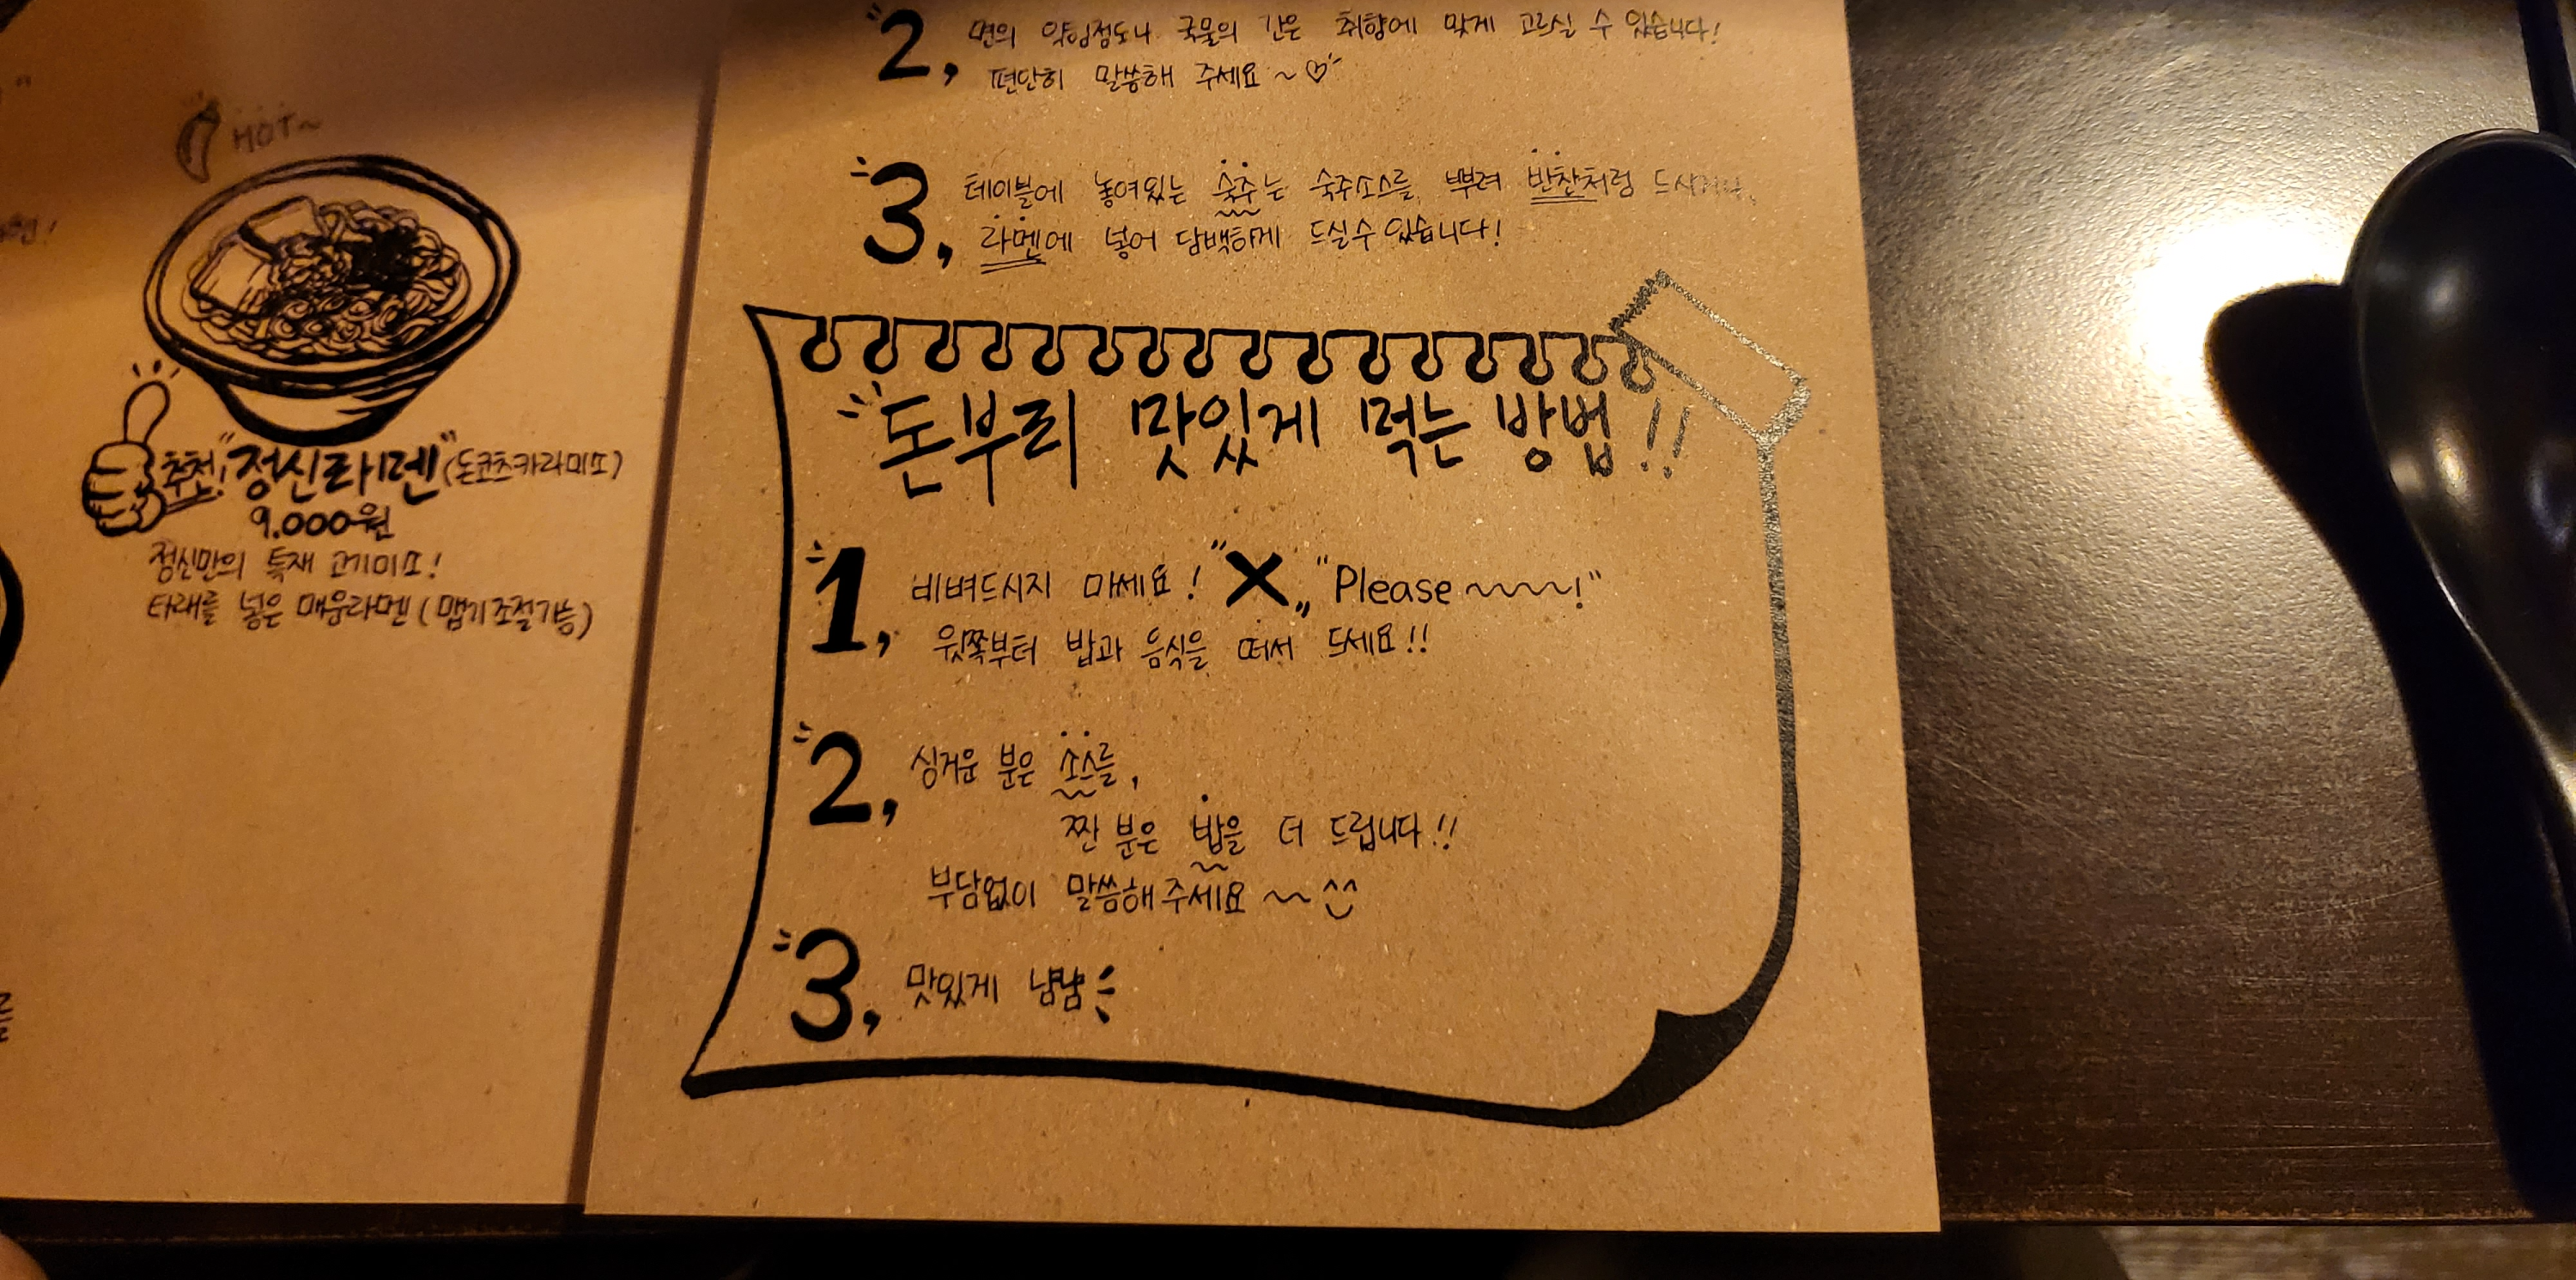 HOT~
추천! "정신라멘" (돈코츠카라미소)
9.000원
정신만의 특재 고기미소!
타래를 넣은 매운라멘 (맵기조절가능)
2, 면의 익힘정도나 국물의 간은 취향에 맞게 고르실 수 있습니다!
편단히 말씀해 주세요~♡
3, 테이블에 놓여있는 숙주는 숙주소스를 뿌려 반찬처럼 드시거나,
라멘에 넣어 담백하게 드실수 있습니다!
돈부리 맛있게 먹는 방법!!
1, 비벼드시지 마세요! "X" "Please~~~!"
윗쪽부터 밥과 음식을 떠서 드세요!!
2, 싱거운 분은 소스를,
짠 분은 밥을 더 드립니다!!
부담없이 말씀해주세요~~ ^^
3, 맛있게 냠냠